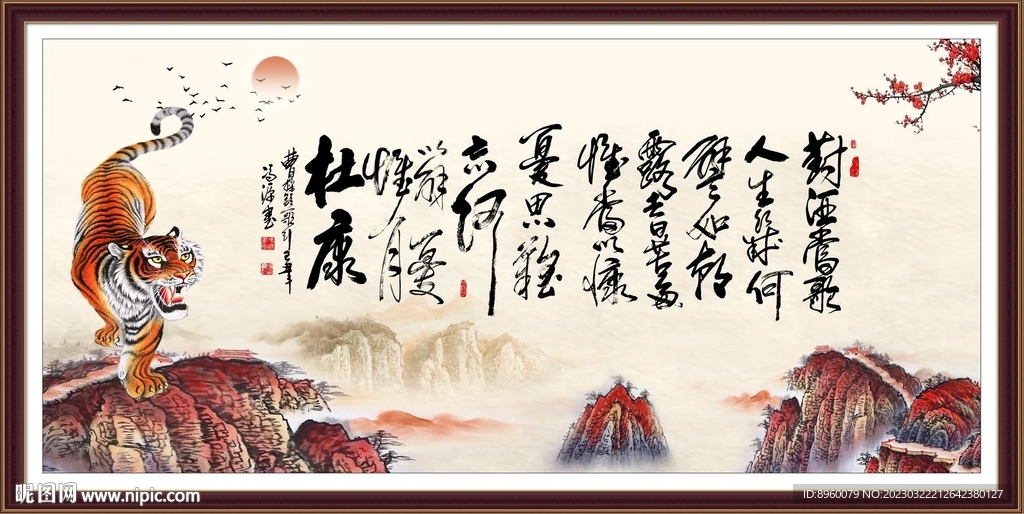 對酒當歌
人生幾何
譬如朝
露去日苦多
慨當以慷
憂思難
忘何
以解憂
惟有
杜康
曹操短歌行
昵图网 www.nipic.com
ID:8960079 NO:20230322212642380127